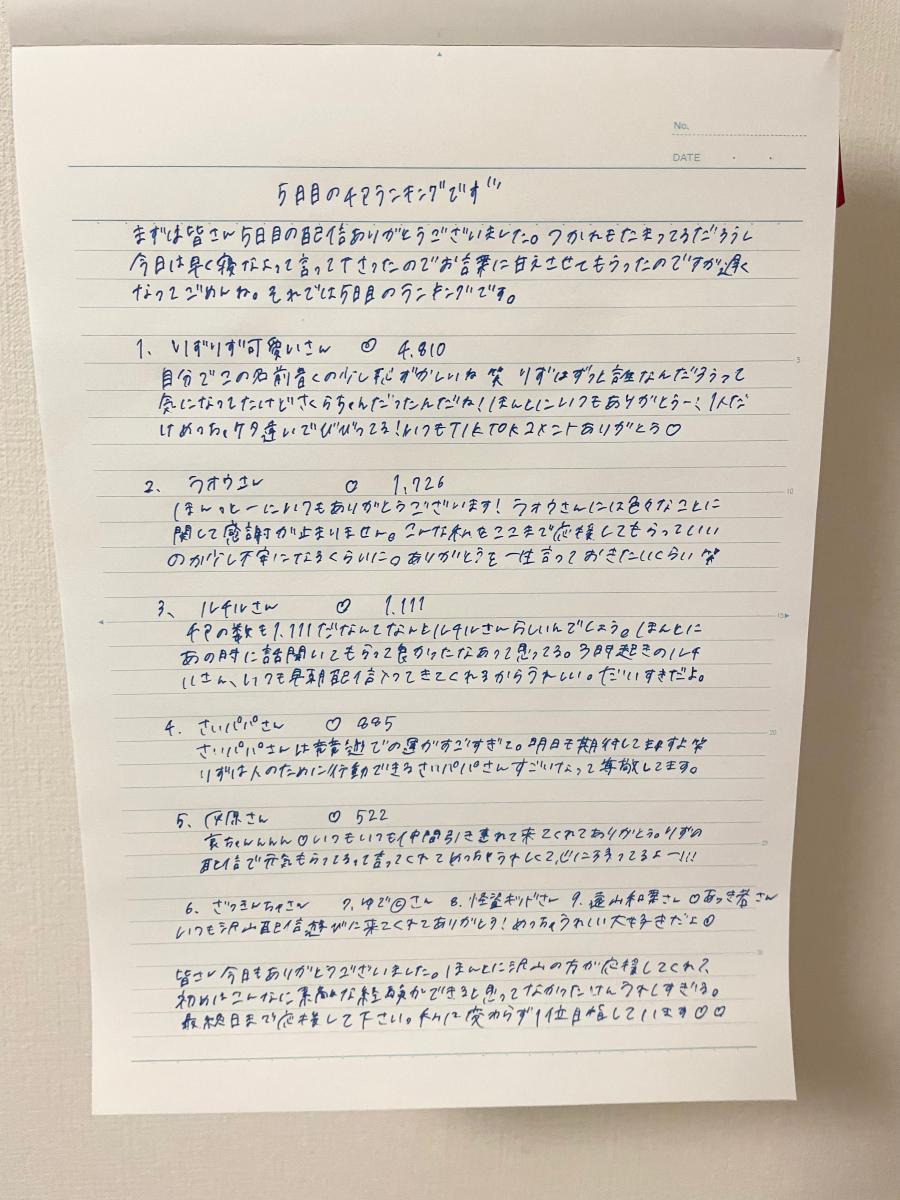 No.
DATE
5日目のチアランキングです
まずは皆さん5日目の配信ありがとうございました。つかれもたまってるだろうし
今日は早く寝なよって言って下さったのでお言葉に甘えさせてもらったのですが遅く
なってごめんね。それでは5日目のランキングです。
1、りずりず可愛いさん ♡ 4,810
自分でこの名前書くの少し恥ずかしいね 笑 りずはずっと誰なんだろうって
気になってたけどさくらちゃんだったんだね!ほんとにいつもありがとうー!1人だ
けめっちゃケタ違いでびびってる!いつもTIKTOKコメントありがとう♡
2、ラオウさん ♡ 1,726
ほんっとーにいつもありがとうございます!ラオウさんには色々なことに
関して感謝が止まりません。こんな私をここまで応援してもらっていい
のか少し不安になるくらいに。ありがとうを一生言っておきたいくらい 笑
3、ルチルさん ♡ 1,111
チアの数も1,111だなんてなんとルチルさんらしいんでしょう。ほんとに
あの時に話聞いてもらって良かったなあって思ってる。3時起きのルチ
ルさん、いつも早朝配信入ってきてくれるからうれしい。だいすきだよ。
4、さいパパさん ♡ 885
さいパパさんは音遊での運がすごすぎて。明日も期待してますよ 笑
りずは人のために行動できるさいパパさんすごいなって尊敬してます。
5、原さん ♡ 522
ちゃんんんん♡いつもいつも仲間引き連れて来てくれてありがとう。りずの
配信で元気もらってるって言ってくれてめっちゃうれしくて、心に残ってるよー!!!
6、ざっきんちゃさん 7、ゆでさん 8、怪盗キッドさん 9、遠山和葉さん 10あっき者さん
いつも沢山配信遊びに来てくれてありがとう!めっちゃうれしい大好きだよ♡
皆さん今日もありがとうございました。ほんとに沢山の方が応援してくれて、
初めはこんなに素敵な経験ができると思ってなかったけんうれしすぎる。
最終日まで応援して下さい。私は変わらず1位目指しています♡♡